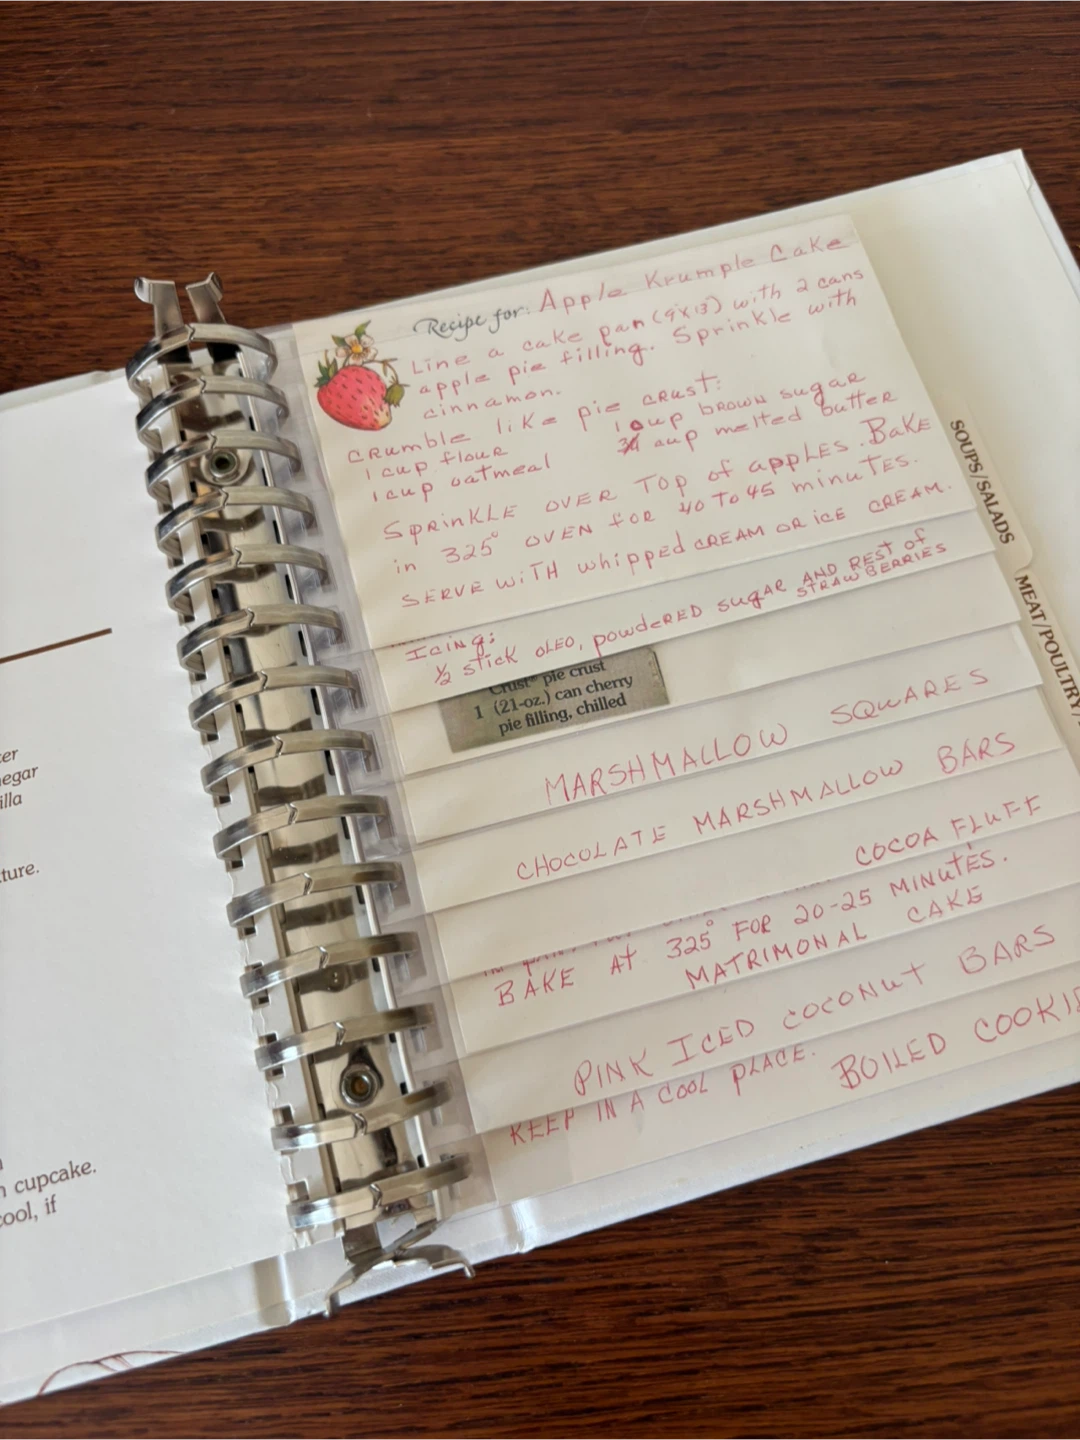 ter
negar
illa
ture.
n cupcake.
cool, if
Recipe for: Apple Krumple Cake
Line a cake pan (9x13) with 2 cans
apple pie filling. Sprinkle with
cinnamon.
crumble like pie crust:
1 cup flour 1 cup brown sugar
1 cup oatmeal cup melted butter
Sprinkle over top of apples. Bake
in 325° oven for 40 to 45 minutes.
Serve with whipped cream or ice cream.
Icing:
½ stick oleo, powdered sugar and rest of
strawberries
Crust® pie crust
1 (21-oz.) can cherry
pie filling, chilled
MARSHMALLOW SQUARES
CHOCOLATE MARSHMALLOW BARS
COCOA FLUFF
BAKE AT 325° FOR 20-25 MINUTES.
MATRIMONAL CAKE
PINK ICED COCONUT BARS
KEEP IN A COOL PLACE.
BOILED COOKIE
SOUPS/SALADS
MEAT/POULTRY/